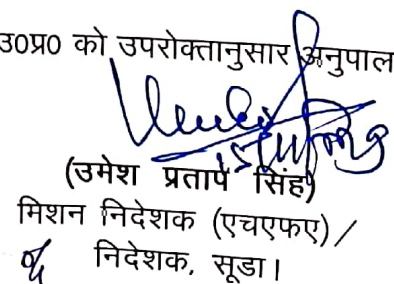 उ०प्र० को उपरोक्तानुसार अनुपाल
(उमेश प्रताप सिंह)
मिशन निदेशक (एचएफए)/
निदेशक, सूडा।